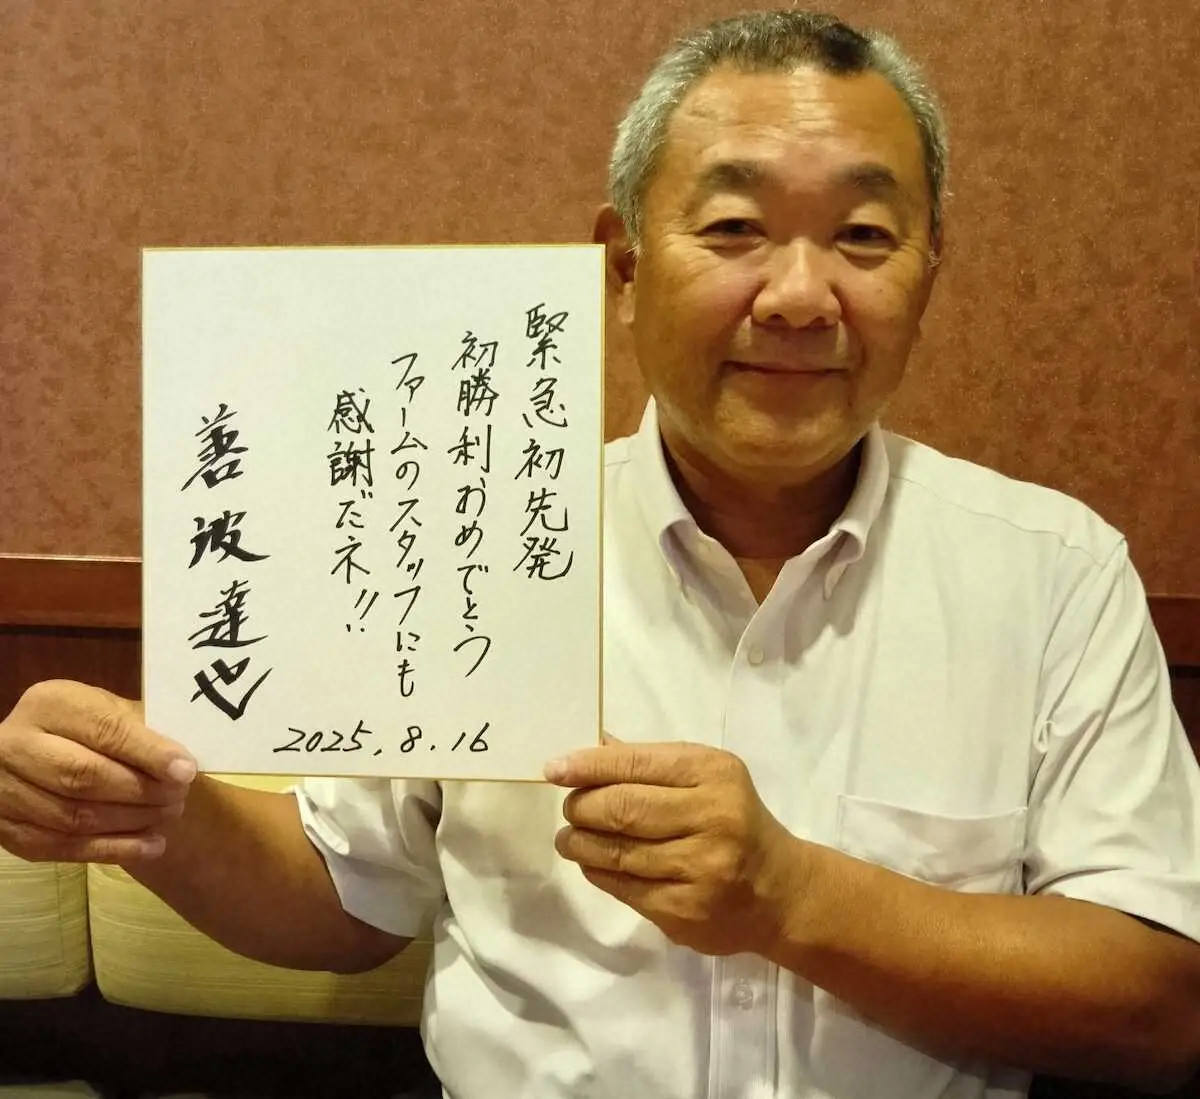 緊急初先発
初勝利おめでとう
ファームのスタッフにも
感謝だネ!!
善波達也
2025.8.16